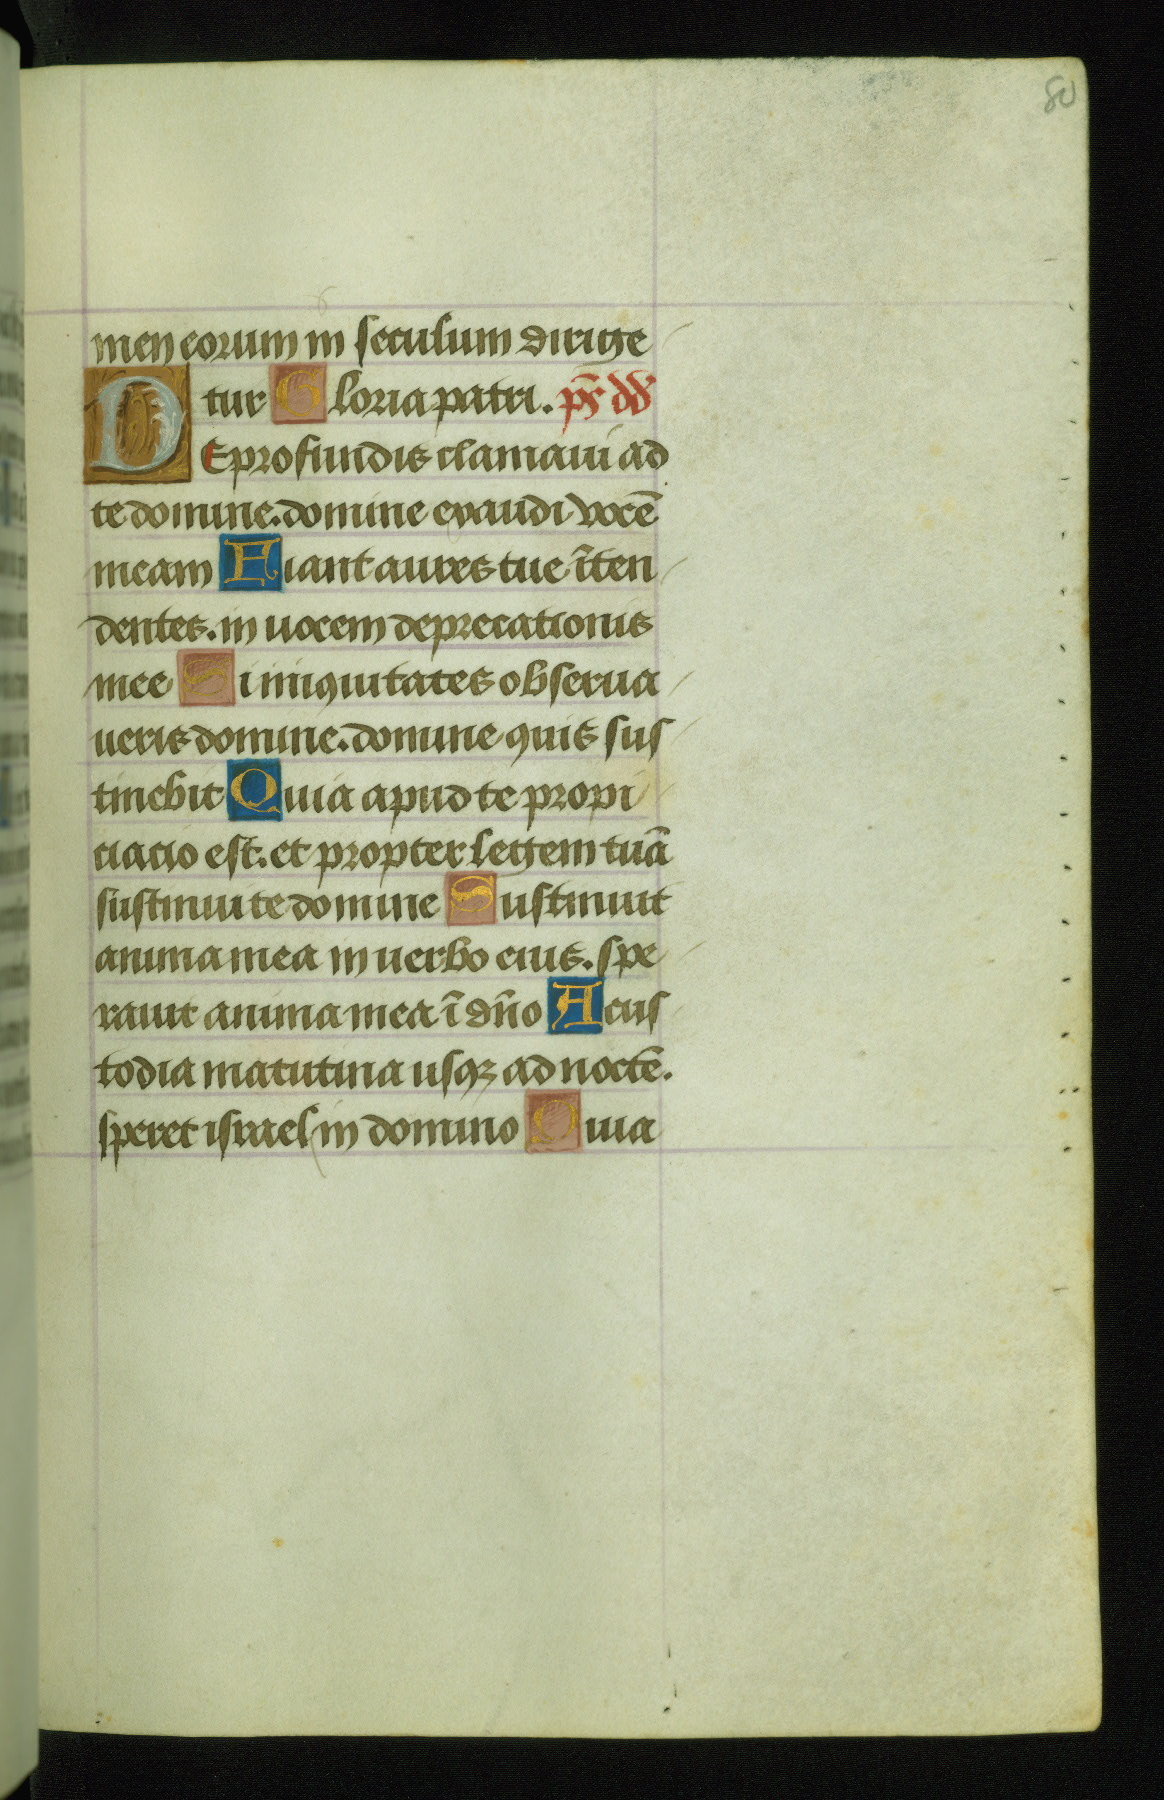 80
men eorum in seculum dirige
tur Gloria patri. ps dd
De profundis clamaui ad
te domine. domine exaudi vocē
meam Fiant aures tue īten
dentes. in uocem deprecationis
mee Si iniquitates obserua
ueris domine. domine quis sus
tinebit Quia apud te propi
ciacio est. et propter legem tuā
sustinui te domine Sustinuit
anima mea in uerbo eius. spe
rauit anima mea ī dn̄o A cus
todia matutina usqꝫ ad noctē.
speret israel in domino Quia